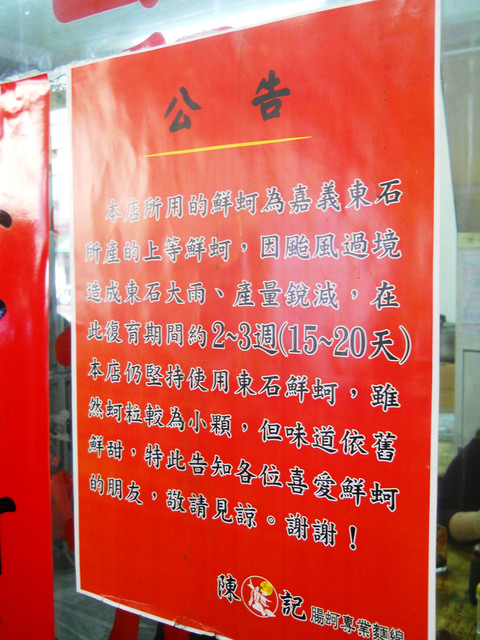 公告
本店所用的鮮蚵為嘉義東石
所產的上等鮮蚵，因颱風過境
造成東石大雨、產量銳減，在
此復育期間約2~3週(15~20天)
本店仍堅持使用東石鮮蚵，雖
然蚵粒較為小顆，但味道依舊
鮮甜，特此告知各位喜愛鮮蚵
的朋友，敬請見諒。謝謝！
陳記 腸蚵專業麵線